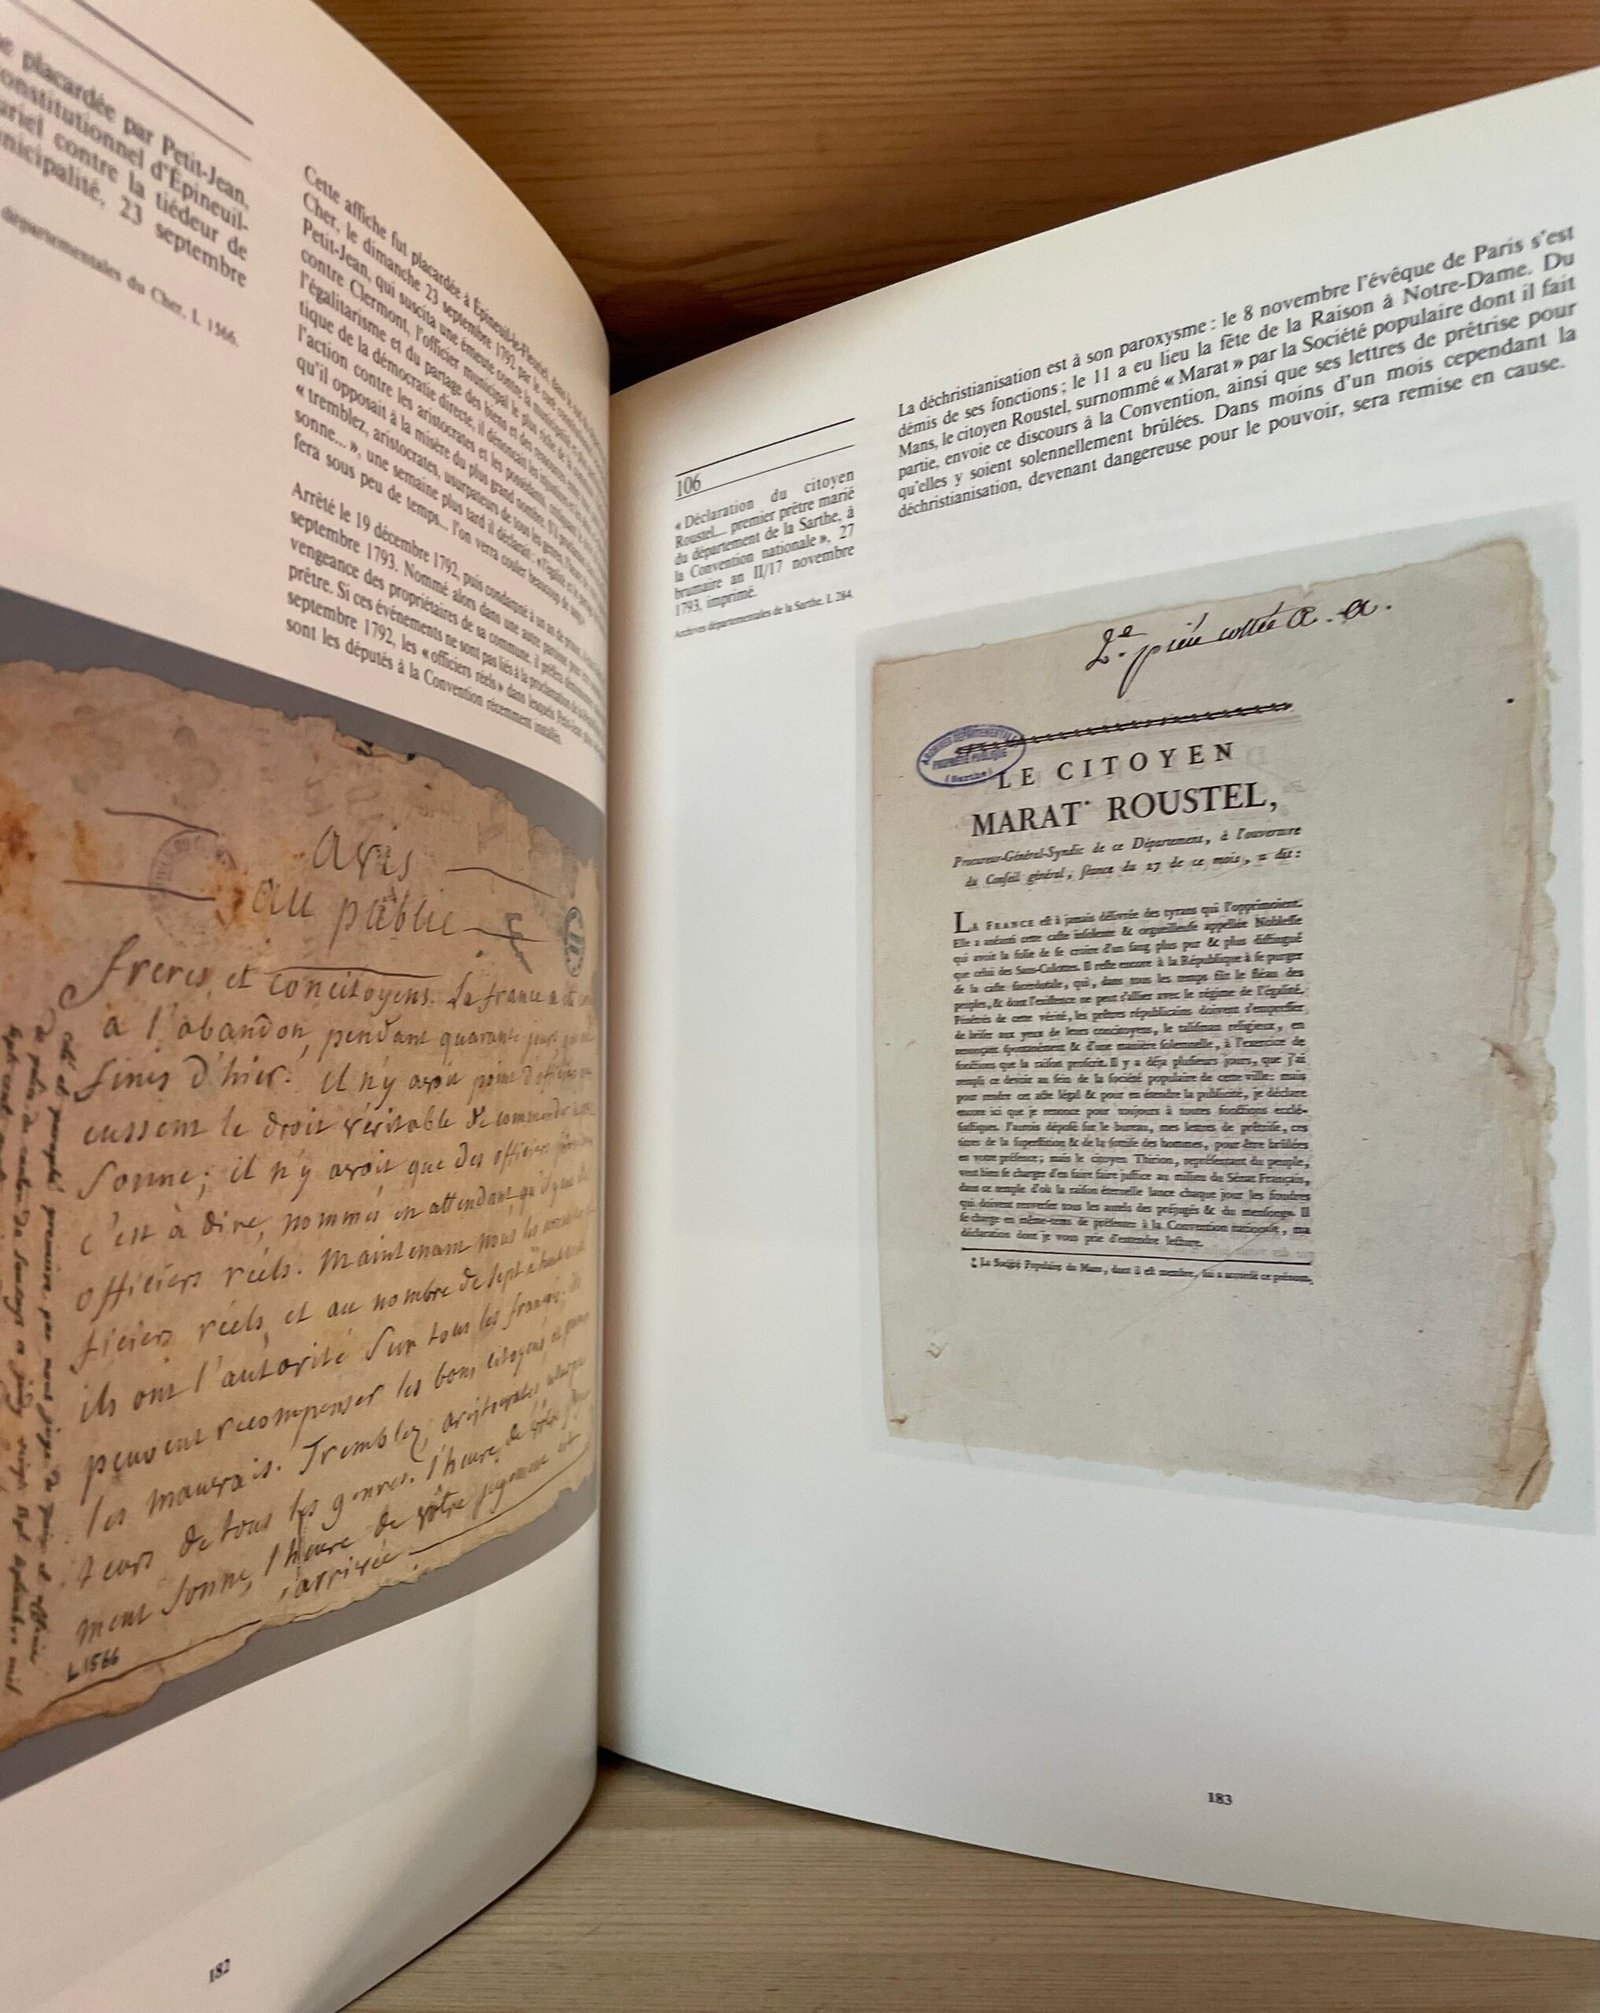 e placardée par Petit-Jean,
onstitutionnel d'Épineuil-
uriel contre la tiédeur de
nicipalité, 23 septembre
départementales du Cher, L 1566.
Cette affiche fut placardée à Épineuil-le-Fleuriel, dans le
Cher, le dimanche 23 septembre 1792 par le curé
Petit-Jean, qui suscita une émeute contre la municipalité
contre Clermont, l'officier municipal le plus riche de la
l'égalitarisme et du partage des biens et des ressources
tique de la démocratie directe, il dénonçait les
l'action contre les aristocrates et les possédants,
qu'il opposait à la misère du plus grand nombre. S'il proclamait
« tremblez, aristocrates, usurpateurs de tous les genres, l'heure
sonne... », une semaine plus tard il déclarait : « l'égalité
fera sous peu de temps... l'on verra couler beaucoup de sang »
Arrêté le 19 décembre 1792, puis condamné à un an de prison,
septembre 1793. Nommé alors dans une autre paroisse
vengeance des propriétaires de sa commune, il préféra
prêtre. Si ces événements ne sont pas liés à la proclamation de la
septembre 1792, les « officiers réels » dans lesquels Petit-Jean
sont les députés à la Convention récemment installés.
avis
au public
freres et concitoyens. La france
a l'abandon, pendant quarante jours
finis d'hier. il n'y avoit point d'officiers
eussent le droit véritable de commander
sonne; il n'y avoit que des officiers
c'est à dire, nommés en attendant qu'il y
officiers réels. maintenant nous les
ficiers réels, et au nombre de sept
ils ont l'autorité sur tous les français;
peuvent recompenser les bons citoyens, et
les mauvais. Tremblez, aristocrates,
teurs de tous les genres. l'heure, de vôtre
ment sonne, l'heure de vôtre jugement est
arrivée
L 1566
182
106
« Déclaration du citoyen
Roustel... premier prêtre marié
du département de la Sarthe, à
la Convention nationale », 27
brumaire an II/17 novembre
1793, imprimé.
Archives départementales de la Sarthe, L 284.
La déchristianisation est à son paroxysme : le 8 novembre l'évêque de Paris s'est
démis de ses fonctions ; le 11 a eu lieu la fête de la Raison à Notre-Dame. Du
Mans, le citoyen Roustel, surnommé « Marat » par la Société populaire dont il fait
partie, envoie ce discours à la Convention, ainsi que ses lettres de prêtrise pour
qu'elles y soient solennellement brûlées. Dans moins d'un mois cependant la
déchristianisation, devenant dangereuse pour le pouvoir, sera remise en cause.
2.e pièce cottée a. a.
ARCHIVES DÉPARTEMENTALES
PROPRIÉTÉ PUBLIQUE
(Sarthe)
LE CITOYEN
MARAT* ROUSTEL,
Procureur-Général-Syndic de ce Département, à l'ouverture
du Conseil général, séance du 27 de ce mois, a dit :
LA FRANCE est à jamais délivrée des tyrans qui l'opprimoient.
Elle a anéanti cette caste insolente & orgueilleuse appellée Noblesse
qui avoit la folie de se croire d'un sang plus pur & plus distingué
que celui des Sans-Culottes. Il reste encore à la République à se purger
de la caste sacerdotale, qui, dans tous les temps fût le fléau des
peuples, & dont l'existence ne peut s'allier avec le régime de l'égalité.
Pénétrés de cette vérité, les prêtres républicains doivent s'empresser
de briser aux yeux de leurs concitoyens, le talisman religieux, en
renonçant spontanément & d'une manière solemnelle, à l'exercice de
fonctions que la raison proscrit. Il y a déja plusieurs jours, que j'ai
rempli ce devoir au sein de la société populaire de cette ville : mais
pour rendre cet acte légal & pour en étendre la publicité, je déclare
encore ici que je renonce pour toujours à toutes fonctions ecclé-
siastiques. J'aurois déposé sur le bureau, mes lettres de prêtrise, ces
titres de la superstition & de la sottise des hommes, pour être brûlées
en votre présence ; mais le citoyen Thirion, représentant du peuple,
veut bien se charger d'en faire faire justice au milieu du Sénat Français,
dans ce temple d'où la raison éternelle lance chaque jour les foudres
qui doivent renverser tous les autels des préjugés & du mensonge. Il
se charge en même-tems de présenter à la Convention nationale, ma
déclaration dont je vous prie d'entendre lecture.
* La Société Populaire du Mans, dont il est membre, lui a accordé ce prénom.
183